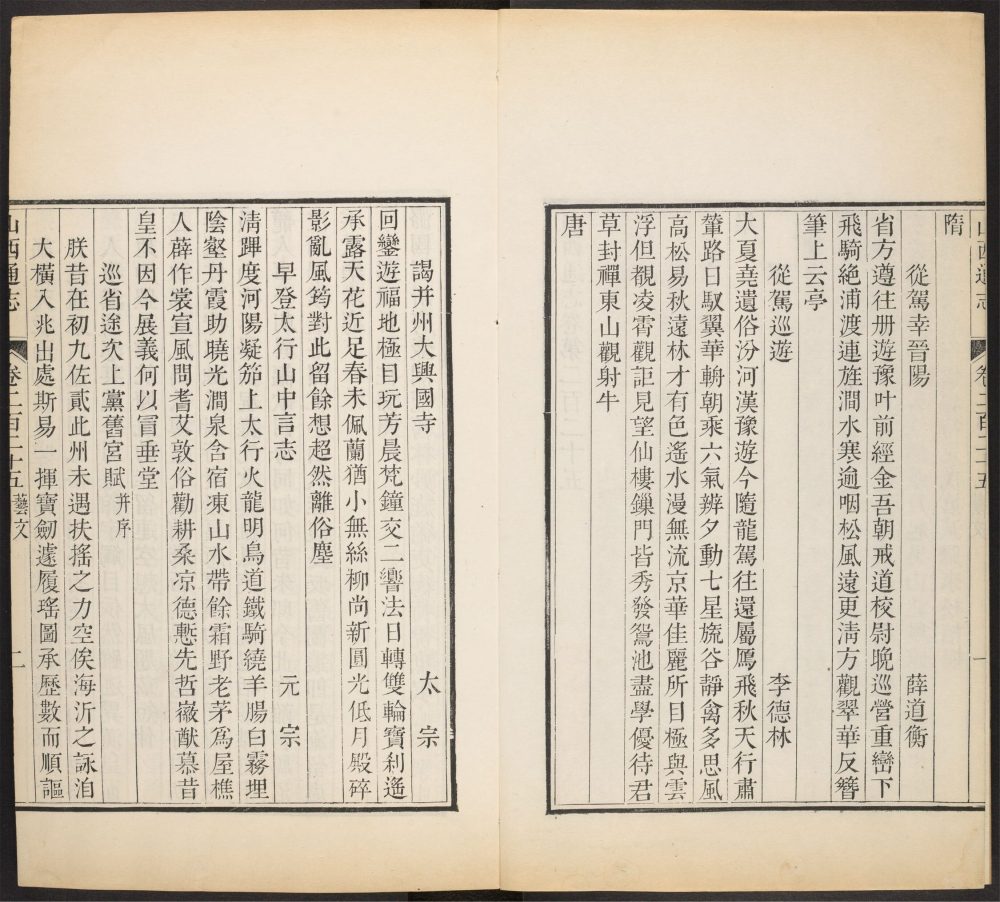 山西通志 卷二百二十五 一
隋
從駕幸晉陽 薛道衡
省方遵往册遊豫叶前經金吾朝戒道校尉晚巡營重巒下
飛騎絶浦渡連旌澗水寒逾咽松風遠更淸方觀翠華反簪
筆上云亭
從駕巡遊 李德林
大夏堯遺俗汾河漢豫遊今隨龍駕往還屬鴈飛秋天行肅
輦路日馭翼華輈朝乘六氣辨夕動七星旒谷靜禽多思風
高松易秋遠林才有色遙水漫無流京華佳麗所目極與雲
浮但覩凌霄觀詎見望仙樓鏁門皆秀發鴛池盡學優待君
草封禪東山觀射牛
唐
謁并州大興國寺 太宗
回鑾遊福地極目玩芳晨梵鐘交二響法日轉雙輪寶刹遙
承露天花近足春未佩蘭猶小無絲柳尚新圓光低月殿碎
影亂風筠對此留餘想超然離俗塵
早登太行山中言志 元宗
淸蹕度河陽凝笳上太行火龍明鳥道鐵騎繞羊腸白霧埋
陰壑丹霞助曉光澗泉含宿凍山水帶餘霜野老茅爲屋樵
人薜作裳宣風問耆艾敦俗勸耕桑凉德慙先哲嶶猷慕昔
皇不因今展義何以冒垂堂
巡省途次上黨舊宮賦 并序
朕昔在初九佐貳此州未遇扶搖之力空俟海沂之詠洎
大橫入兆出處斯易一揮寶劒遽履瑤圖承歷數而順謳
山西通志 卷二百二十五 藝文 二